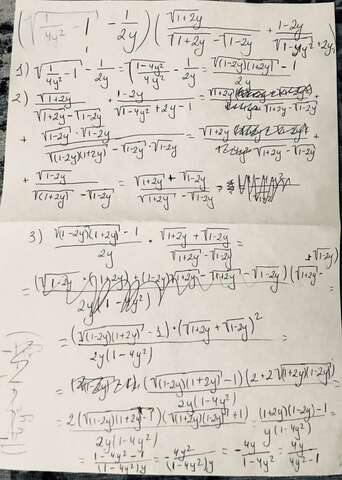 (√(1/4y² - 1) - 1/2y) (√(1+2y)/(√(1+2y) - √(1-2y)) + (1-2y)/(√(1-4y²) + 2y
1) √(1/4y² - 1) - 1/2y = √((1-4y²)/4y²) - 1/2y = (√((1-2y)(1+2y)) - 1)/2y
2) √(1+2y)/(√(1+2y) - √(1-2y)) + (1-2y)/(√(1-4y²) + 2y - 1) = √(1+2y)/(√(1+2y) - √(1-2y))
+ (√(1-2y) · √(1-2y))/(√((1-2y)(1+2y)) - √(1-2y) · √(1-2y)) = √(1+2y)/(√(1+2y) - √(1-2y)) +
+ √(1-2y)/(√(1+2y) - √(1-2y)) = (√(1+2y) + √(1-2y))/(√(1+2y) - √(1-2y))
3) (√((1-2y)(1+2y)) - 1)/2y · (√(1+2y) + √(1-2y))/(√(1+2y) - √(1-2y)) =
= ((√((1-2y)(1+2y)) - 1) · (√(1+2y) + √(1-2y))²)/2y(1-4y²) =
= (√((1-2y)(1+2y)) - 1)(2 + 2√((1+2y)(1-2y)))/2y(1-4y²) =
= 2(√((1-2y)(1+2y)) - 1)(√((1+2y)(1-2y)) + 1)/2y(1-4y²) = ((1+2y)(1-2y) - 1)/y(1-4y²) =
= (1-4y²-1)/(1-4y²)y = -4y²/(1-4y²)y = -4y/(1-4y²) = 4y/(4y²-1)